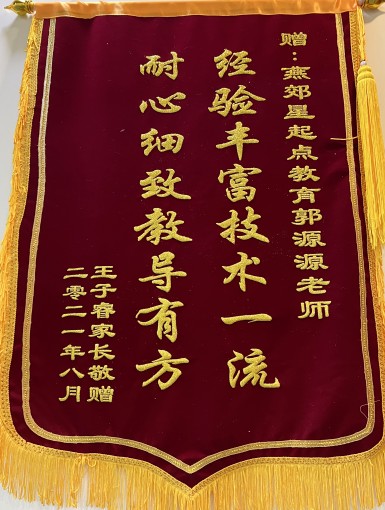 赠：燕郊星起点教育郭源源老师
经验丰富技术一流
耐心细致教导有方
王子睿家长敬赠
二零二一年八月